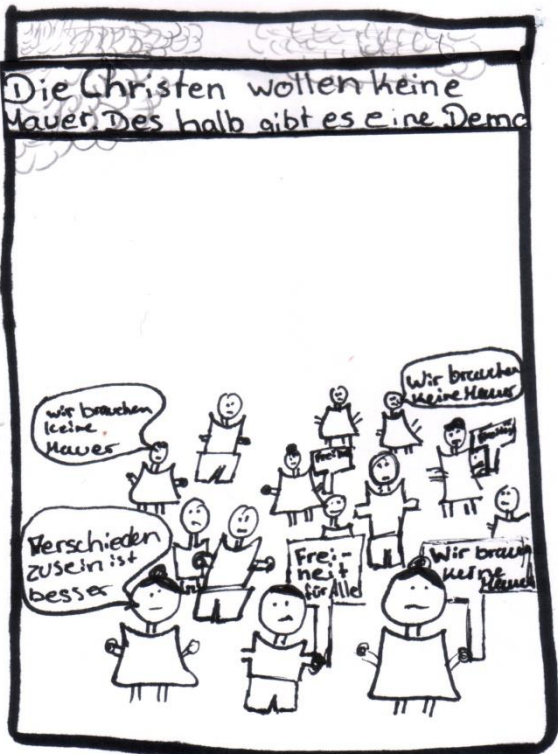 Die Christen wollen keine
Mauer. Des halb gibt es eine Demo
Wir brauchen
keine Mauer
wir brauchen
keine
Mauer
Verschieden
zu sein ist
besser
Frei-
heit
für Alle
Wir brauch
keine
Mauer